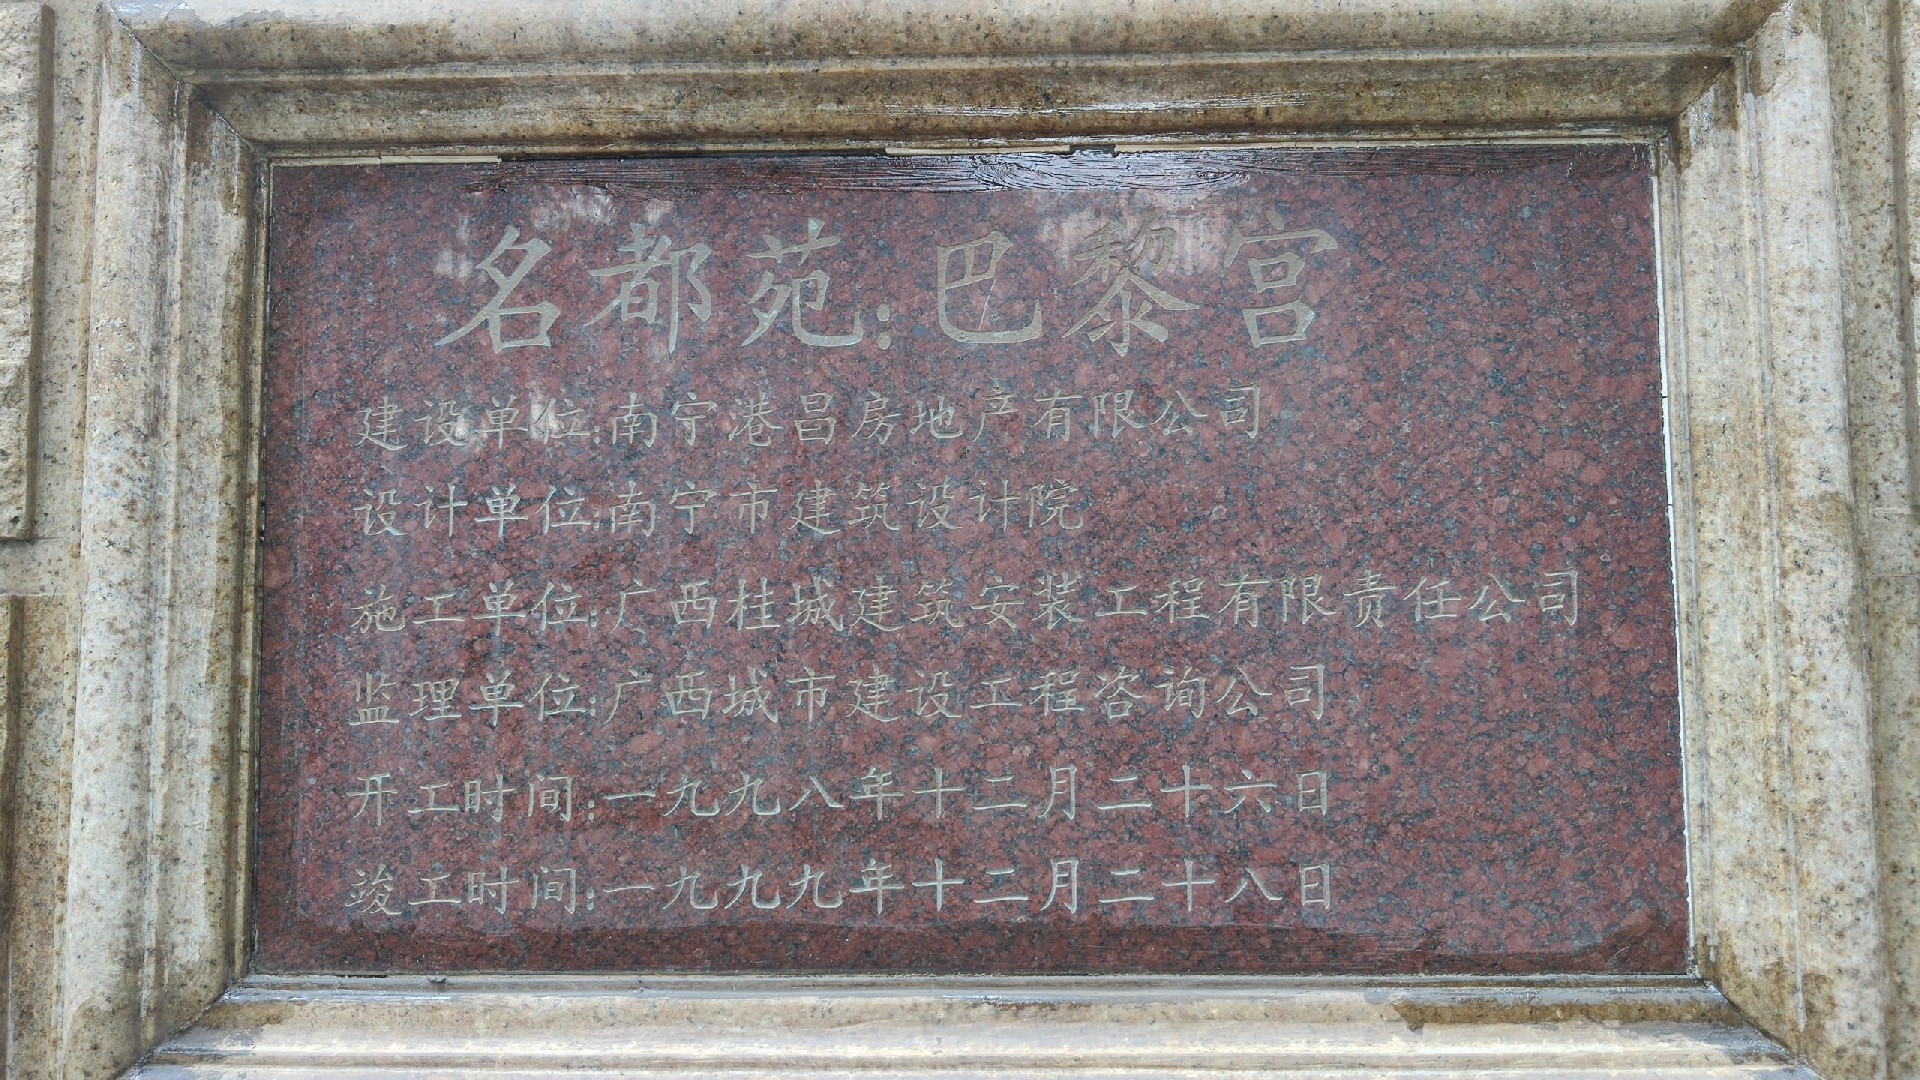 名都苑:巴黎宫
建设单位:南宁港昌房地产有限公司
设计单位:南宁市建筑设计院
施工单位:广西桂城建筑安装工程有限责任公司
监理单位:广西城市建设工程咨询公司
开工时间:一九九八年十二月二十六日
竣工时间:一九九九年十二月二十八日